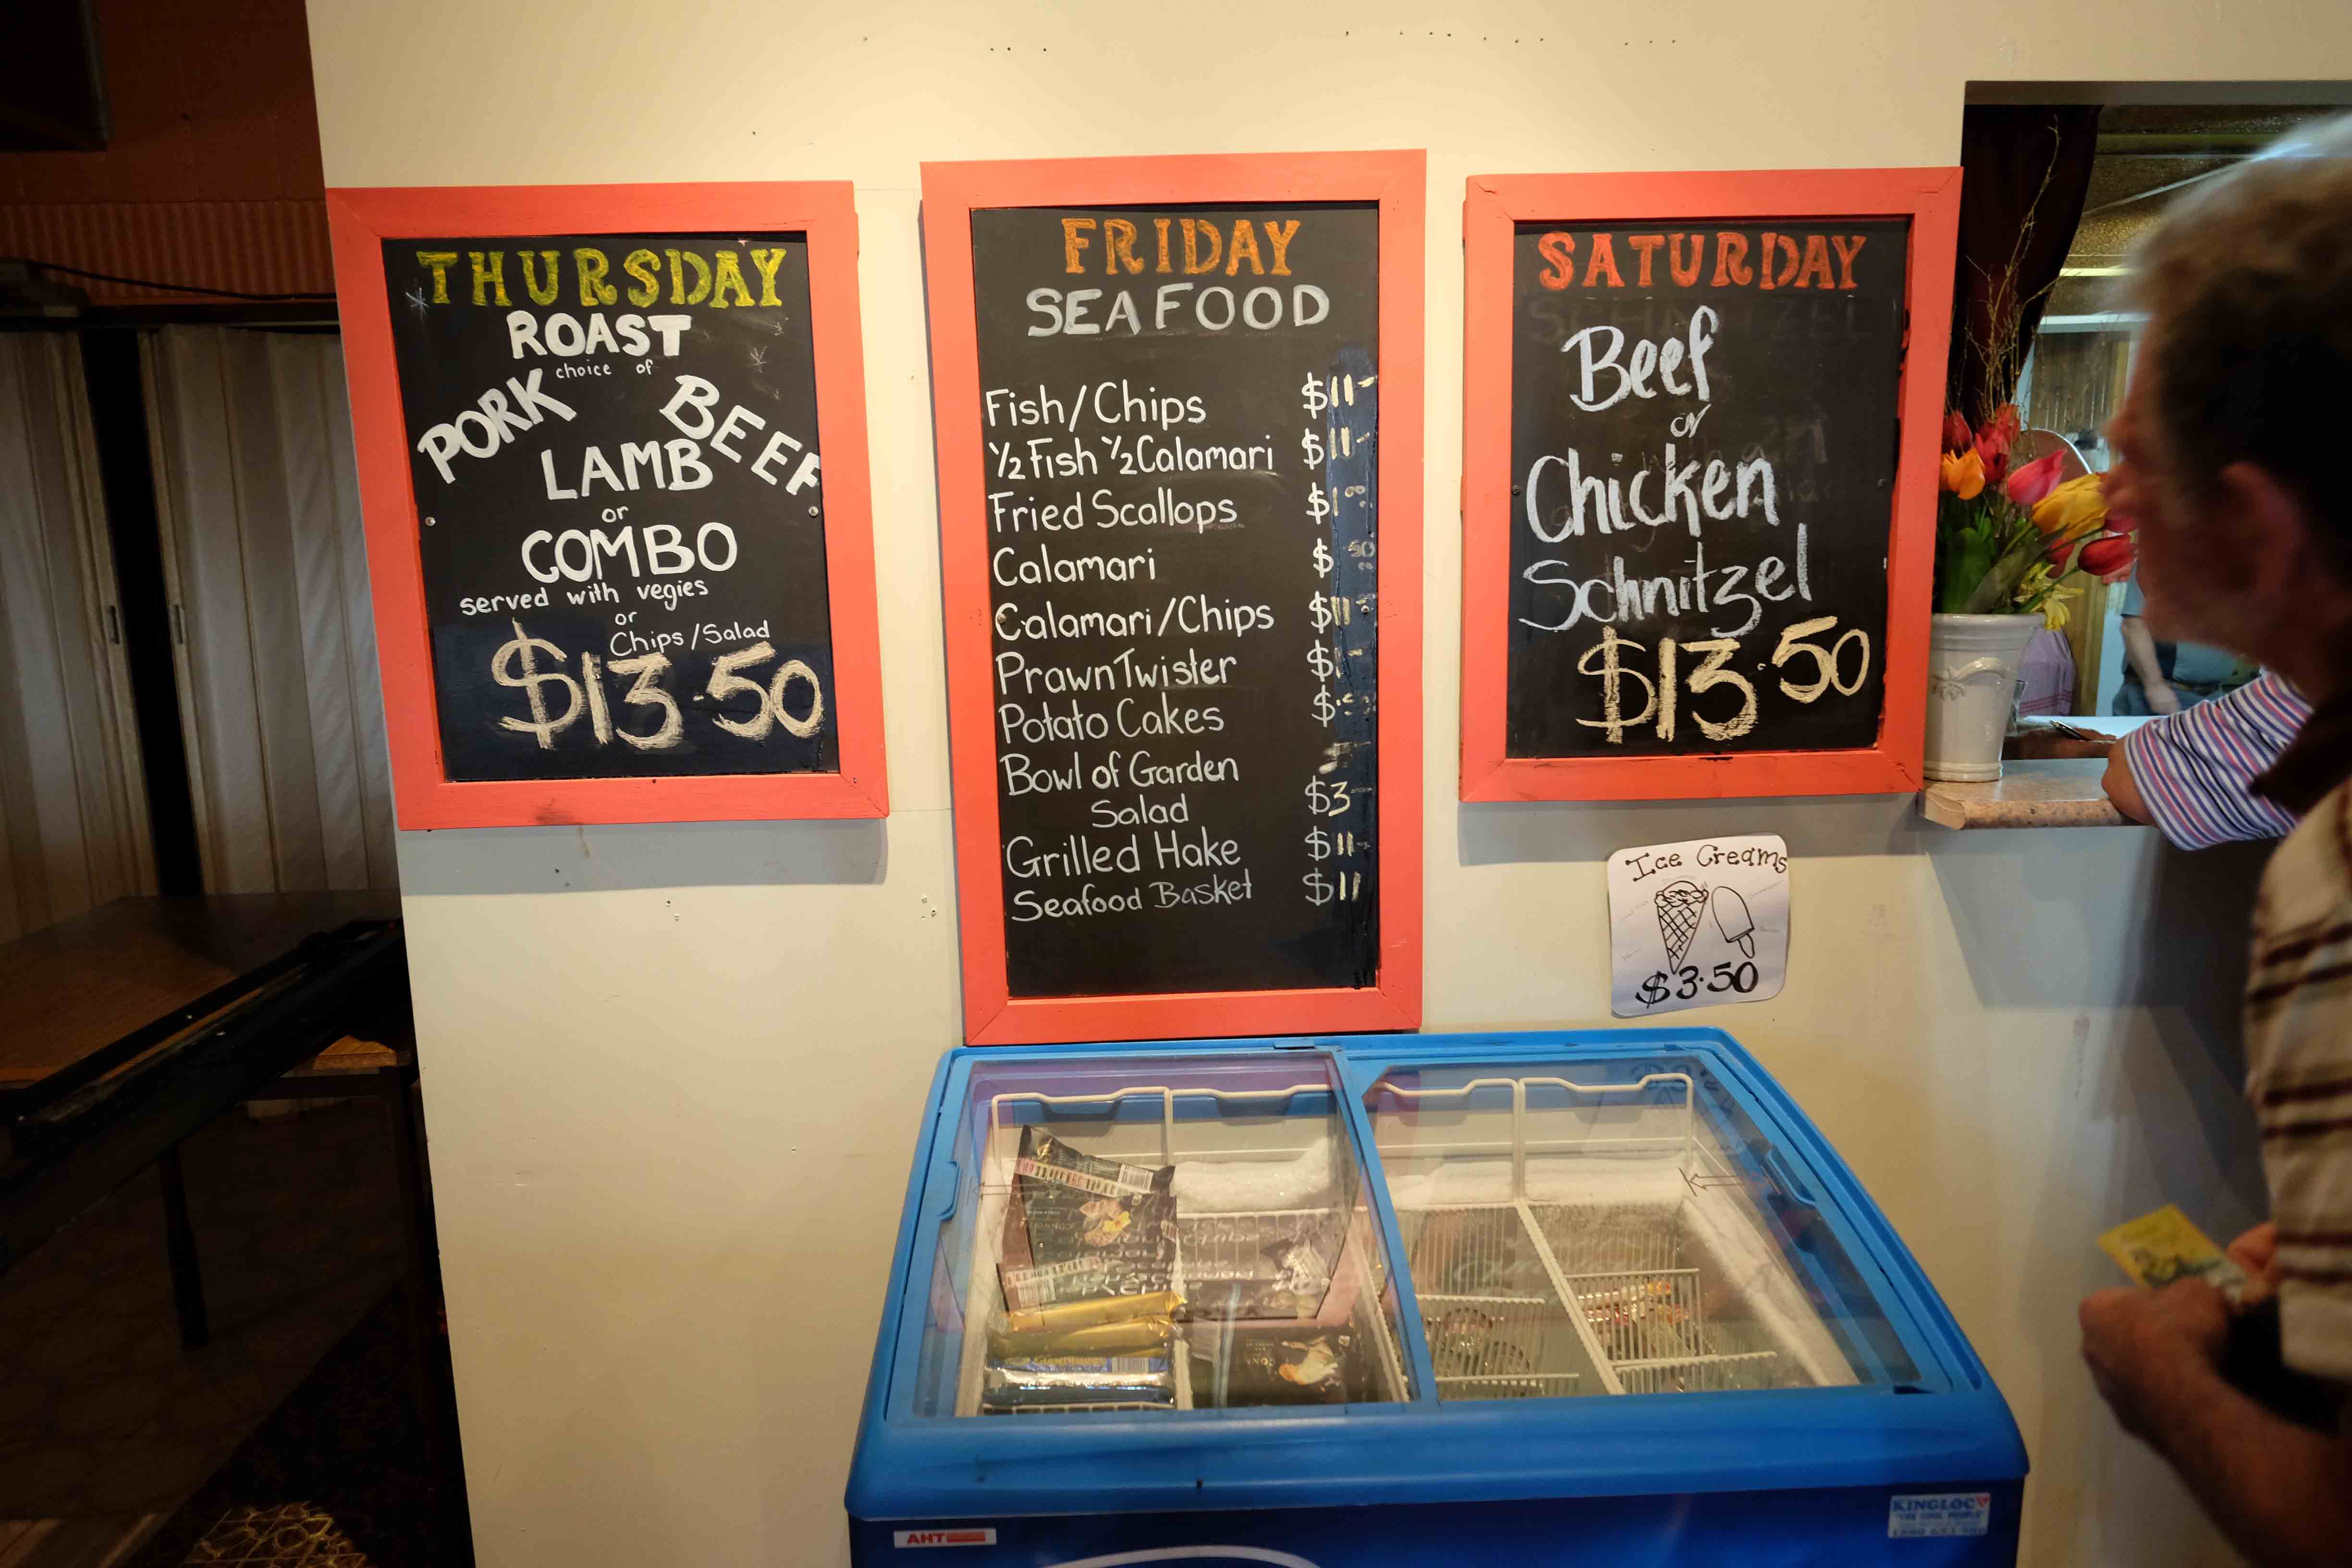 THURSDAY
ROAST
choice of
PORK BEEF
LAMB
or
COMBO
served with vegies
or
Chips/Salad
$13.50
FRIDAY
SEAFOOD
Fish/Chips $11-
½ Fish ½ Calamari $11-
Fried Scallops $1
Calamari $ 50
Calamari/Chips $11-
Prawn Twister $1-
Potato Cakes $
Bowl of Garden
Salad $3
Grilled Hake $11-
Seafood Basket $11
SATURDAY
Beef
or
Chicken
Schnitzel
$13.50
Ice Creams
$3.50
AHT
KINGLOC
"THE COOL PEOPLE"